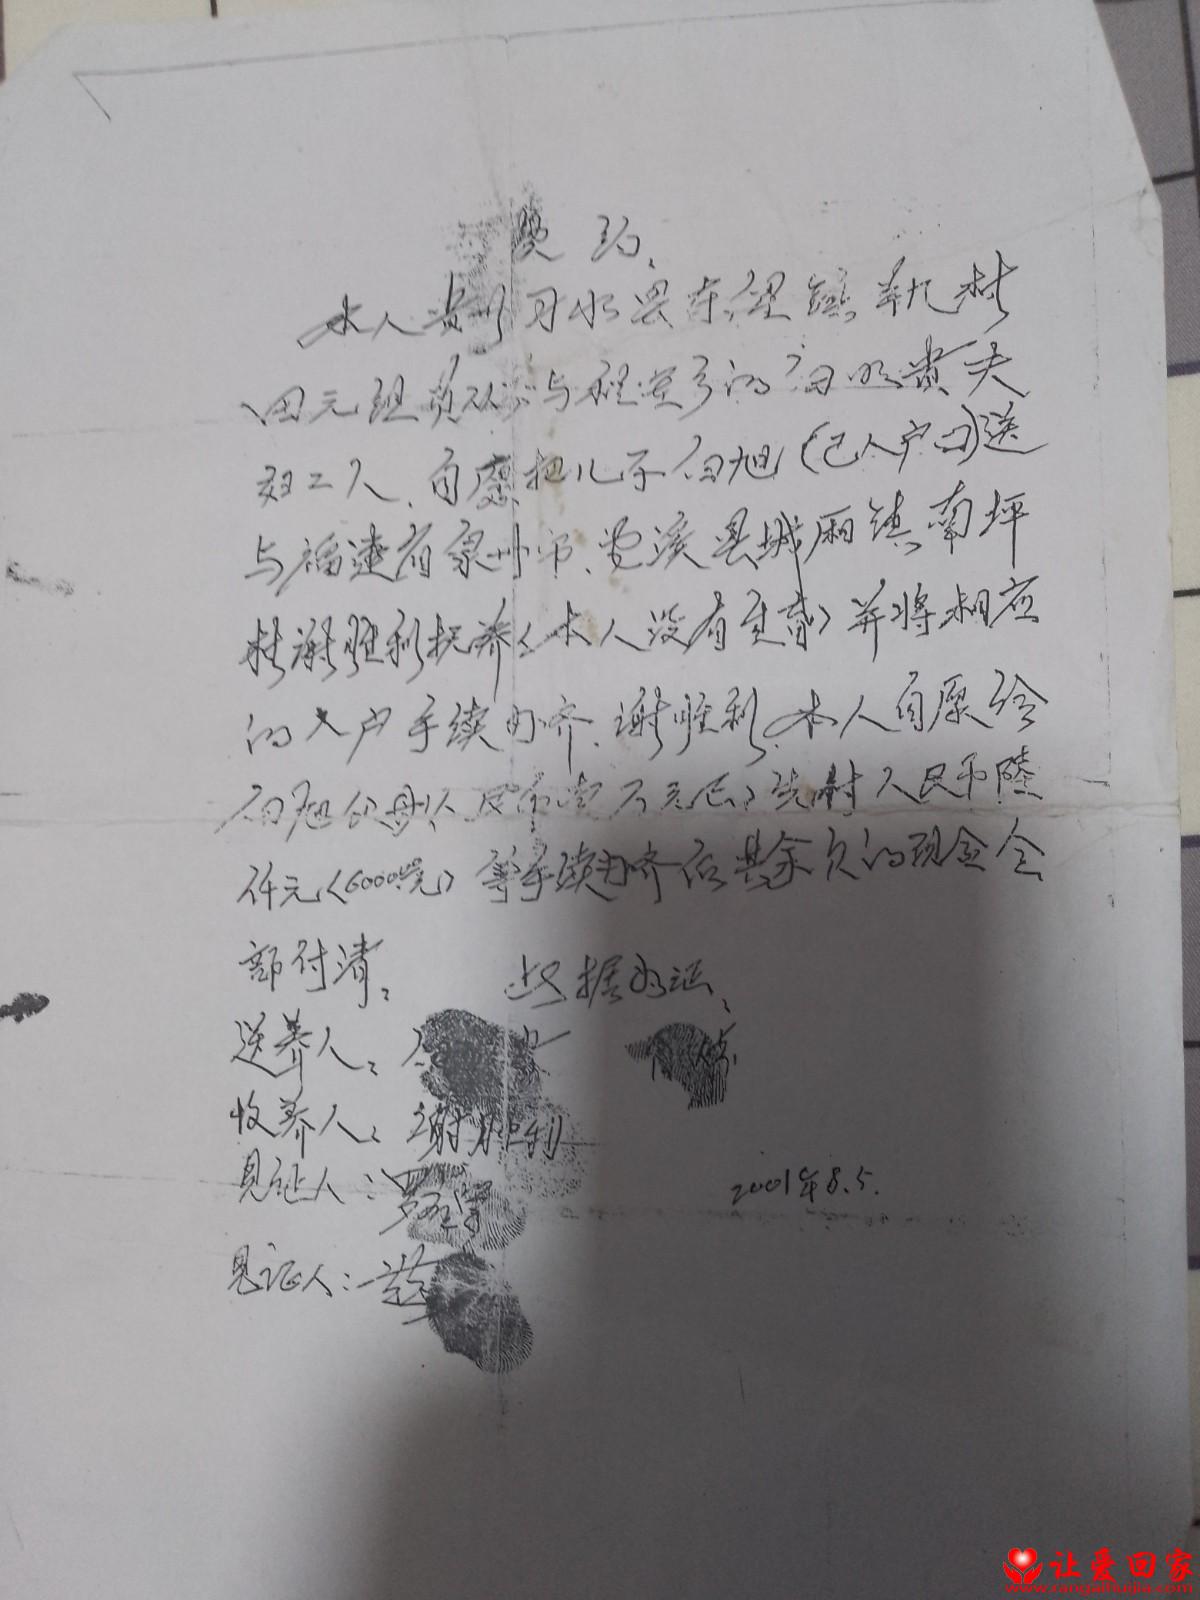 契约、
本人贵州习水县东皇镇 村
田元组 与程 的 贵夫
妇二人、自愿把儿子 旭(已入户口)送
与福建省泉州市、安溪县城厢镇南坪
村谢胜利抚养(本人没有生育)并将相应
的入户手续办齐、谢胜利、本人自愿给
旭父母人民币 万元正、先付人民币陆
仟元(6000元)等手续办齐后其余欠的现金全
部付清、 立据为证、
送养人、
收养人、谢 利
见证人:罗
见证人:
2001年8.5.
让爱回家
www.rangaihuijia.com